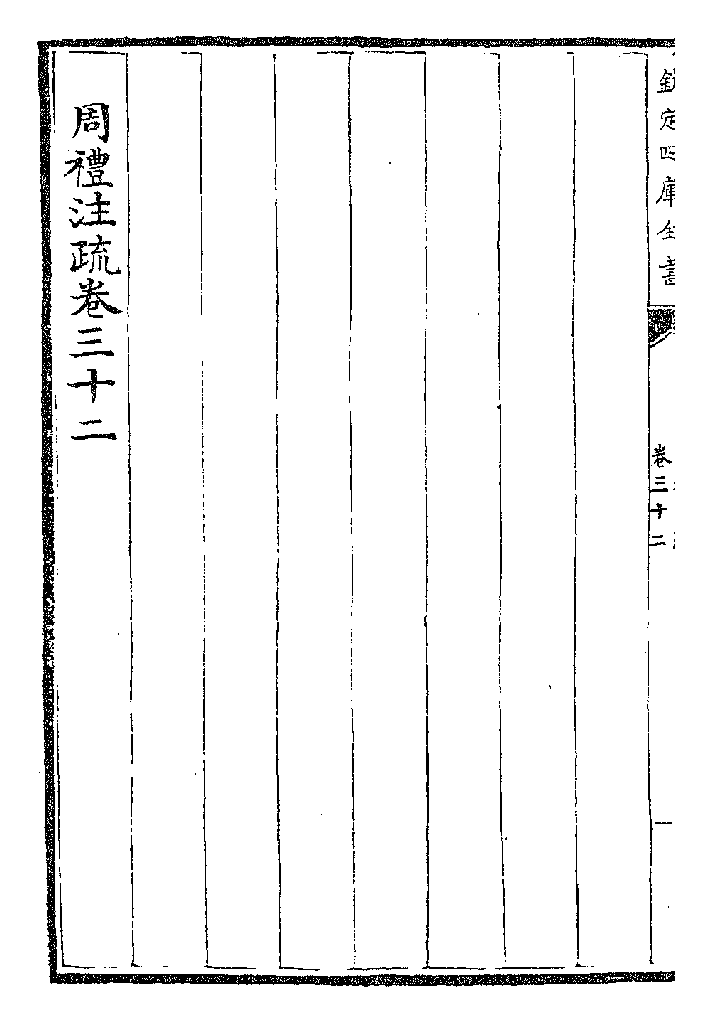 欽定四庫全書
卷三十二
周禮注疏卷三十二